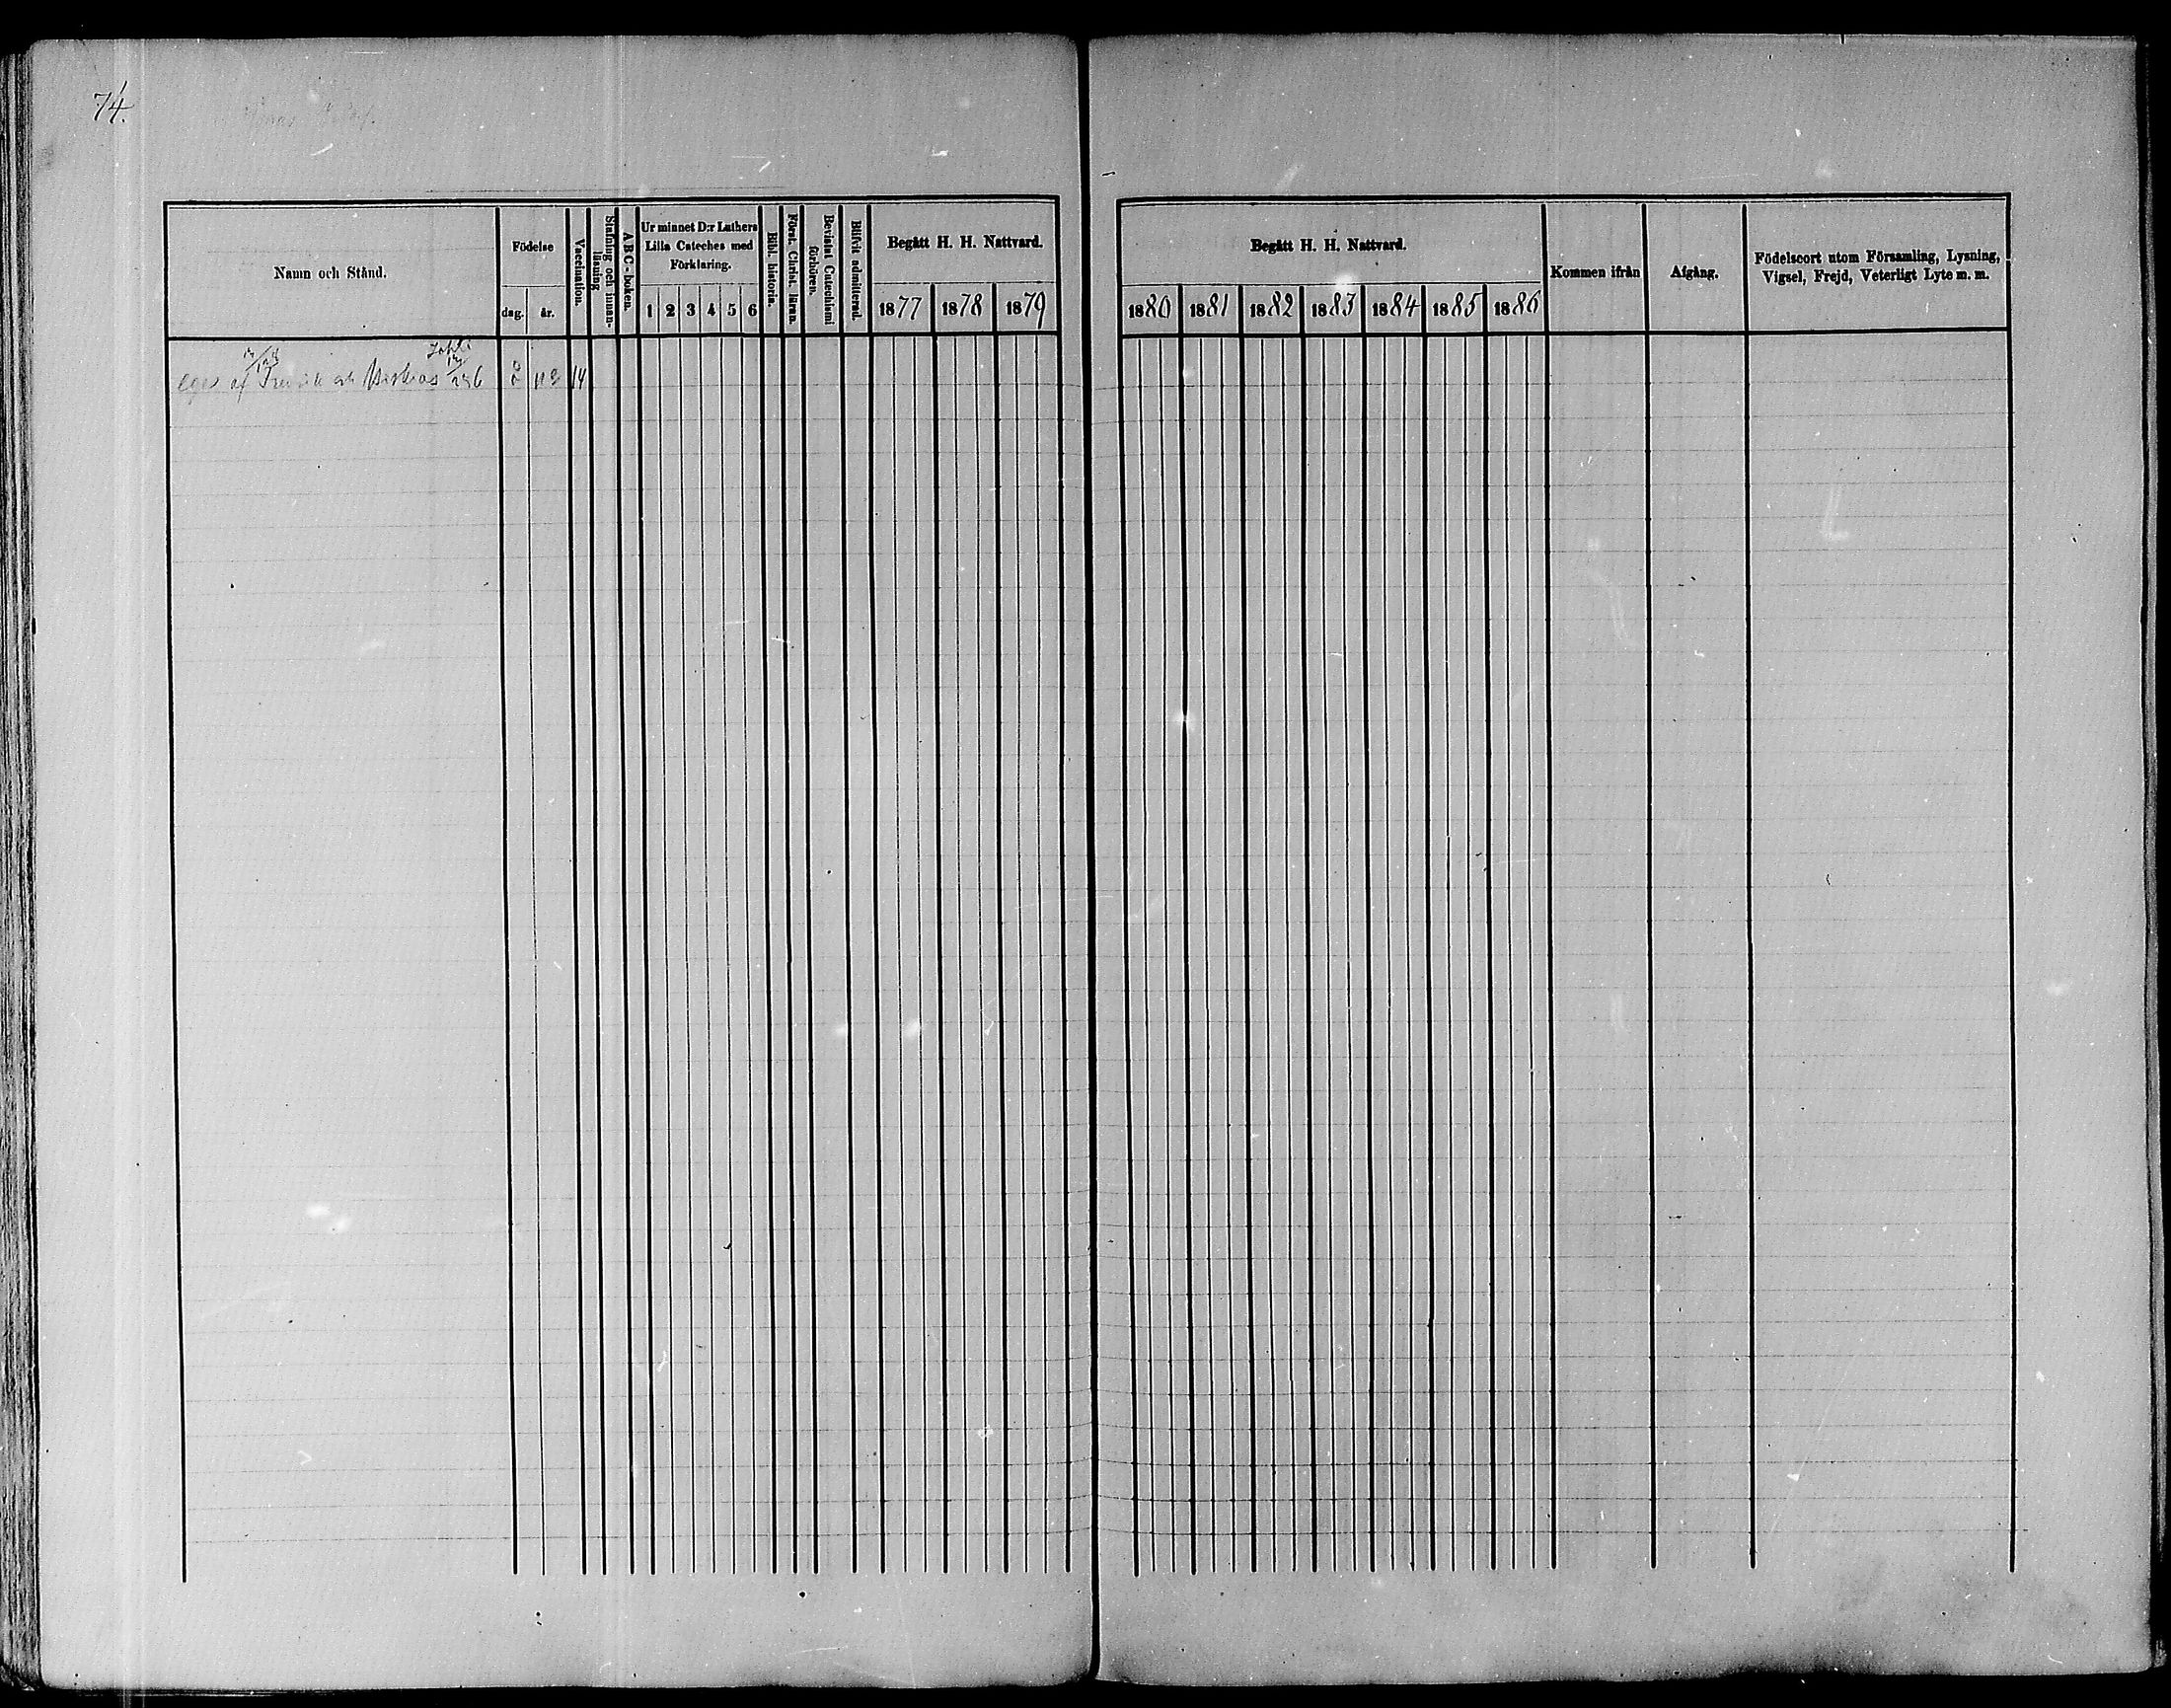 74.
Namn och Stånd.
Födelse
dag.
år.
Vaccination.
Stafning och innan-
läsning
ABC-boken.
Ur minnet D:r Luthers
Lilla Cateches med
Förklaring.
1 2 3 4 5 6
Bibl. historia.
Först. Christ. läran.
Bevistat Catechismi
förhören.
Blifvit admitterad.
Begått H. H. Nattvard.
1877 1878 1879
eges af
14
Begått H. H. Nattvard.
1880 1881 1882 1883 1884 1885 1886
Kommen ifrån
Afgång.
Födelseort utom Församling, Lysning,
Vigsel, Frejd, Veterligt Lyte m. m.